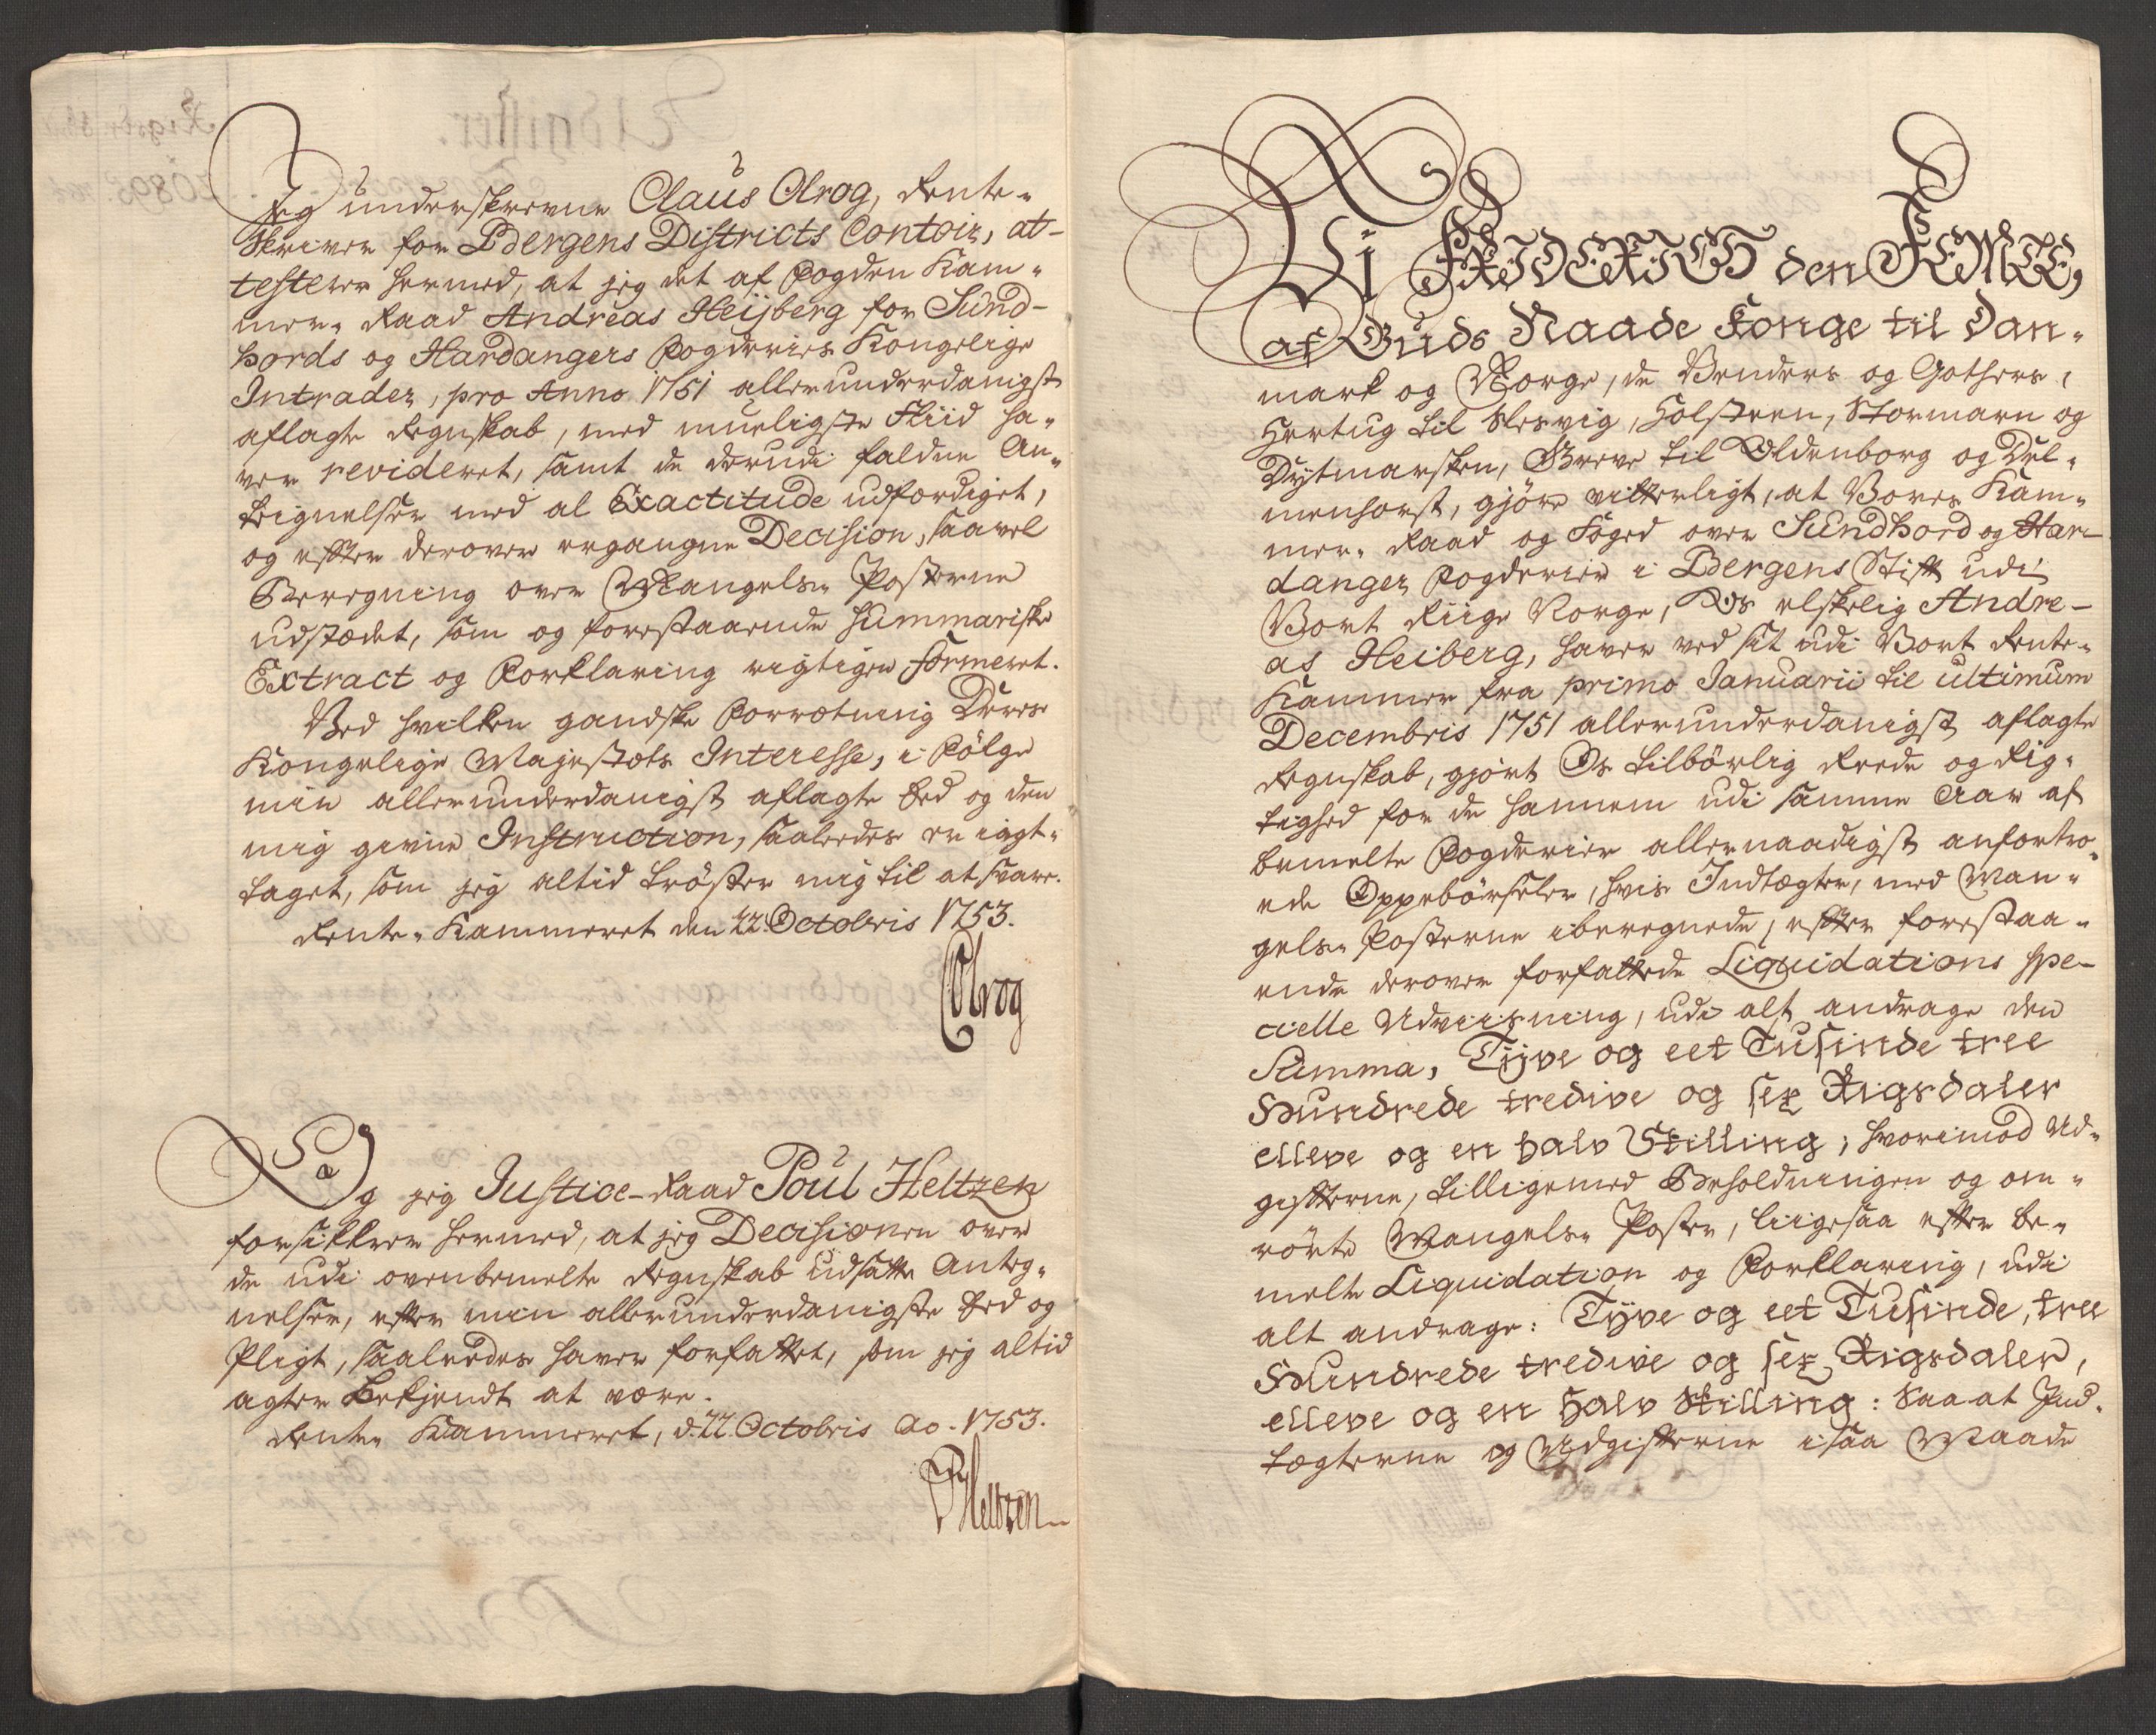 Jeg underskrevne Claus Olrog, Rente-
skriver for Bergens Districts Contoir, at-
testerer hermed, at jeg det af Fogden Kam-
mer-Raad Andreas Heijberg for Sund-
hords og Hardangers Fogderies Kongelige
Intrader, pro Anno 1751 allerunderdanigst
aflagte Regnskab, med mueligste Fliid ha-
ver revideret, samt de derudi faldne An-
teignelser med al Exactitude udferdiget,
og efter derover ergangne Decision, saavel
Beregning over Mangels-Posterne
udstædet, som og forestaaende summariske
Extract og Forklaring rigtigen formeret.
Ved hvilken gandske Forrætning Deres
Kongelige Majestæts Interesse, i Følge
min allerunderdanigst aflagte Eed og den
mig givne Instruction, saaledes er iagt-
taget, som jeg altid trøster mig til at svare.
Rente-Kammeret den 22 Octobris 1753.
COlrog
Og jeg Justice-Raad Poul Heltzen
forsikkrer hermed, at jeg Decisionen over
de udi ovenbemelte Regnskab udsatte Anteg-
nelser, efter min allerunderdanigste Eed og
Pligt, saaledes haver forfattet, som jeg altid
agter bekjendt at være.
Rente-Kammeret, d. 22. Octobris Ao. 1753.
PHeltzen
Vi FRIDERICH den FEMTE,
af Guds Naade Konge til Dan-
mark og Norge, de Venders og Gothers,
Hertug til Slesvig, Holsteen, Stormarn og
Dytmarsken, Greve til Oldenborg og Del-
menhorst, giøre vitterligt, at Vores Kam-
mer-Raad og Foged over Sundhord og Har-
danger Fogderier i Bergens Stift udi
Vort Riige Norge, Os elskelig Andre-
as Heiberg, haver ved sit udi Vort Rente-
Kammer fra primo Januarii til ultimum
Decembris 1751 allerunderdanigst aflagte
Regnskab, gjørt Os tilbørlig Reede og Rig-
tighed for de hannem udi samme Aar af
bemelte Fogderier allernaadigst anfortro-
ede Oppebørseler, hvis Indtægter, med Man-
gels-Posterne iberegnede, efter forestaa-
ende derover forfattede Liquidations spe-
cielle Udviisning, udi alt andrage den
Summa, Tyve og eet Tusinde tree
Hundrede tredive og sex Rigsdaler
elleve og en halv Skilling; hvorimod Ud-
gifterne, tilligemed Beholdningen og om-
rørte Mangels-Poster, liigesaa efter be-
melte Liquidation og Forklaring, udi
alt andrage: Tyve og eet Tusinde, tree
Hundrede tredive og sex Rigsdaler,
elleve og en halv Skilling: Saa at Ind-
tægterne og Udgifterne i saa Maade